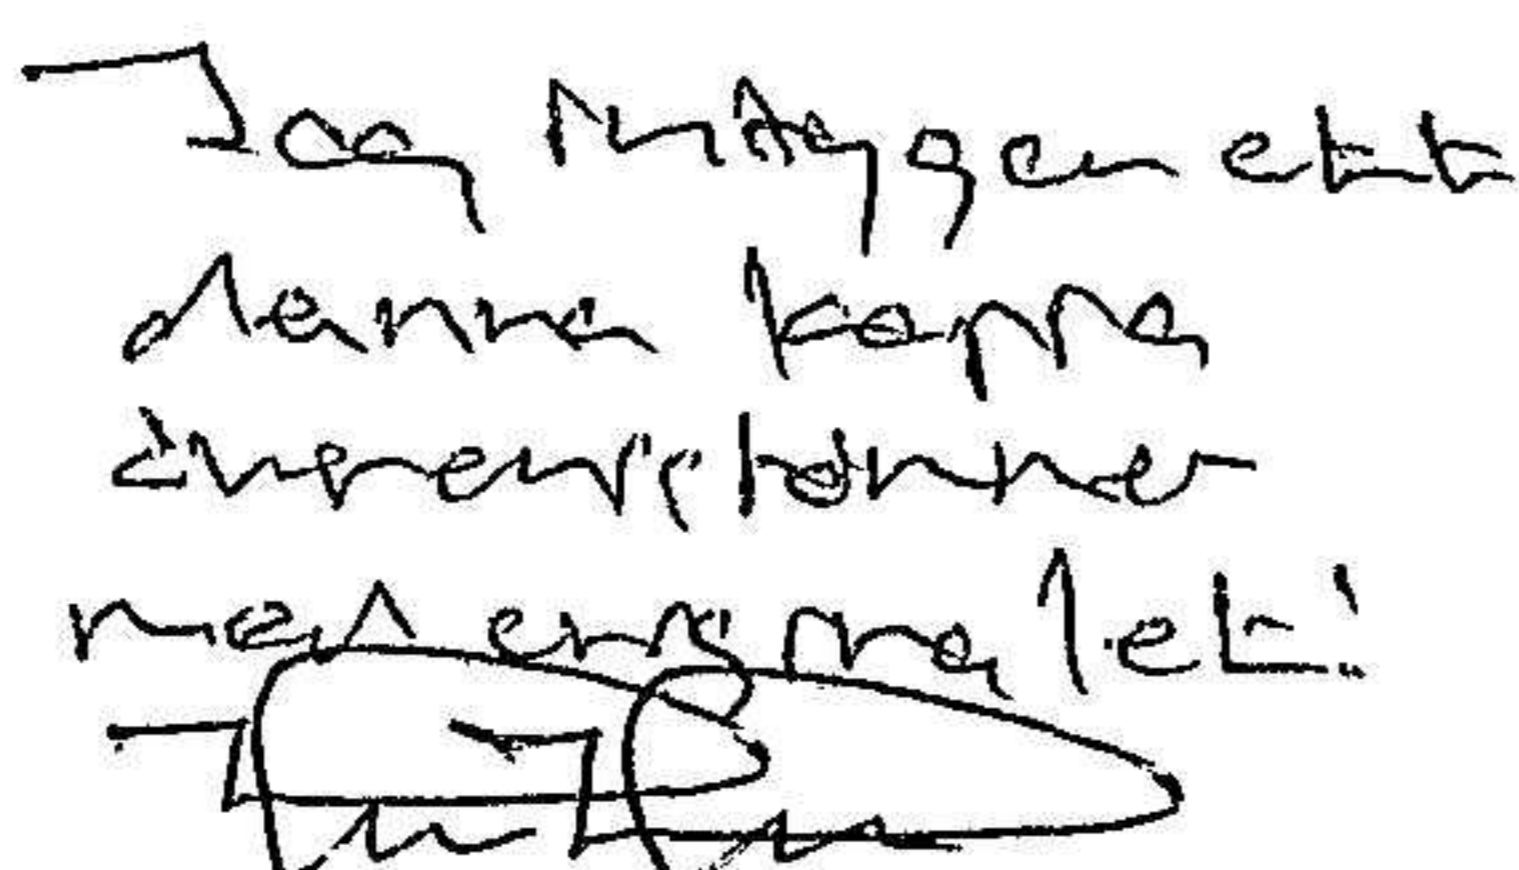 Jag intygar att
denna kopia
överensstämmer
med originalet!